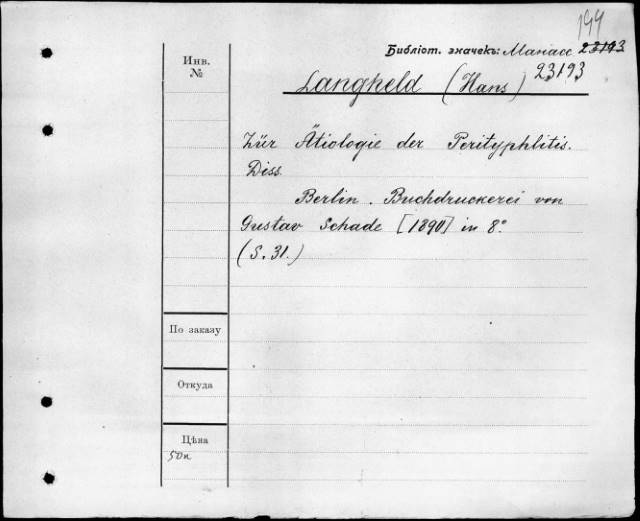 199
Библіот. значекъ: Манасс 23193
23193
Инв.
№
Langheld (Hans)
Zür Ätiologie der Perityphlitis.
Diss.
Berlin. Buchdruckerei von
Gustav Schade [1890] in 8°
(S. 31.)
По заказу
Откуда
Цѣна
50к